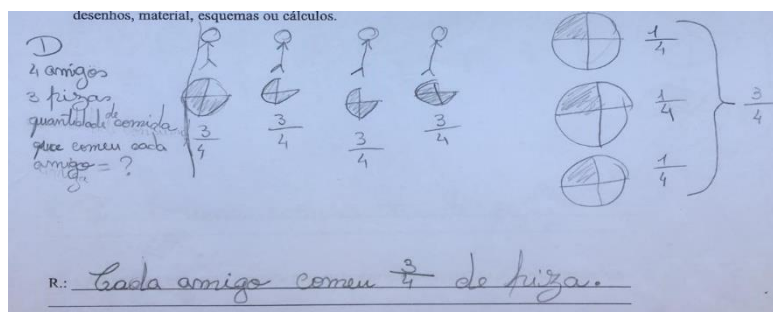 desenhos, material, esquemas ou cálculos.
D
4 amigos
3 pizas
quantidade de comida
que comeu cada
amigo = ?
3/4 3/4 3/4 3/4
1/4
1/4
1/4
3/4
R.: Cada amigo comeu 3/4 de piza.